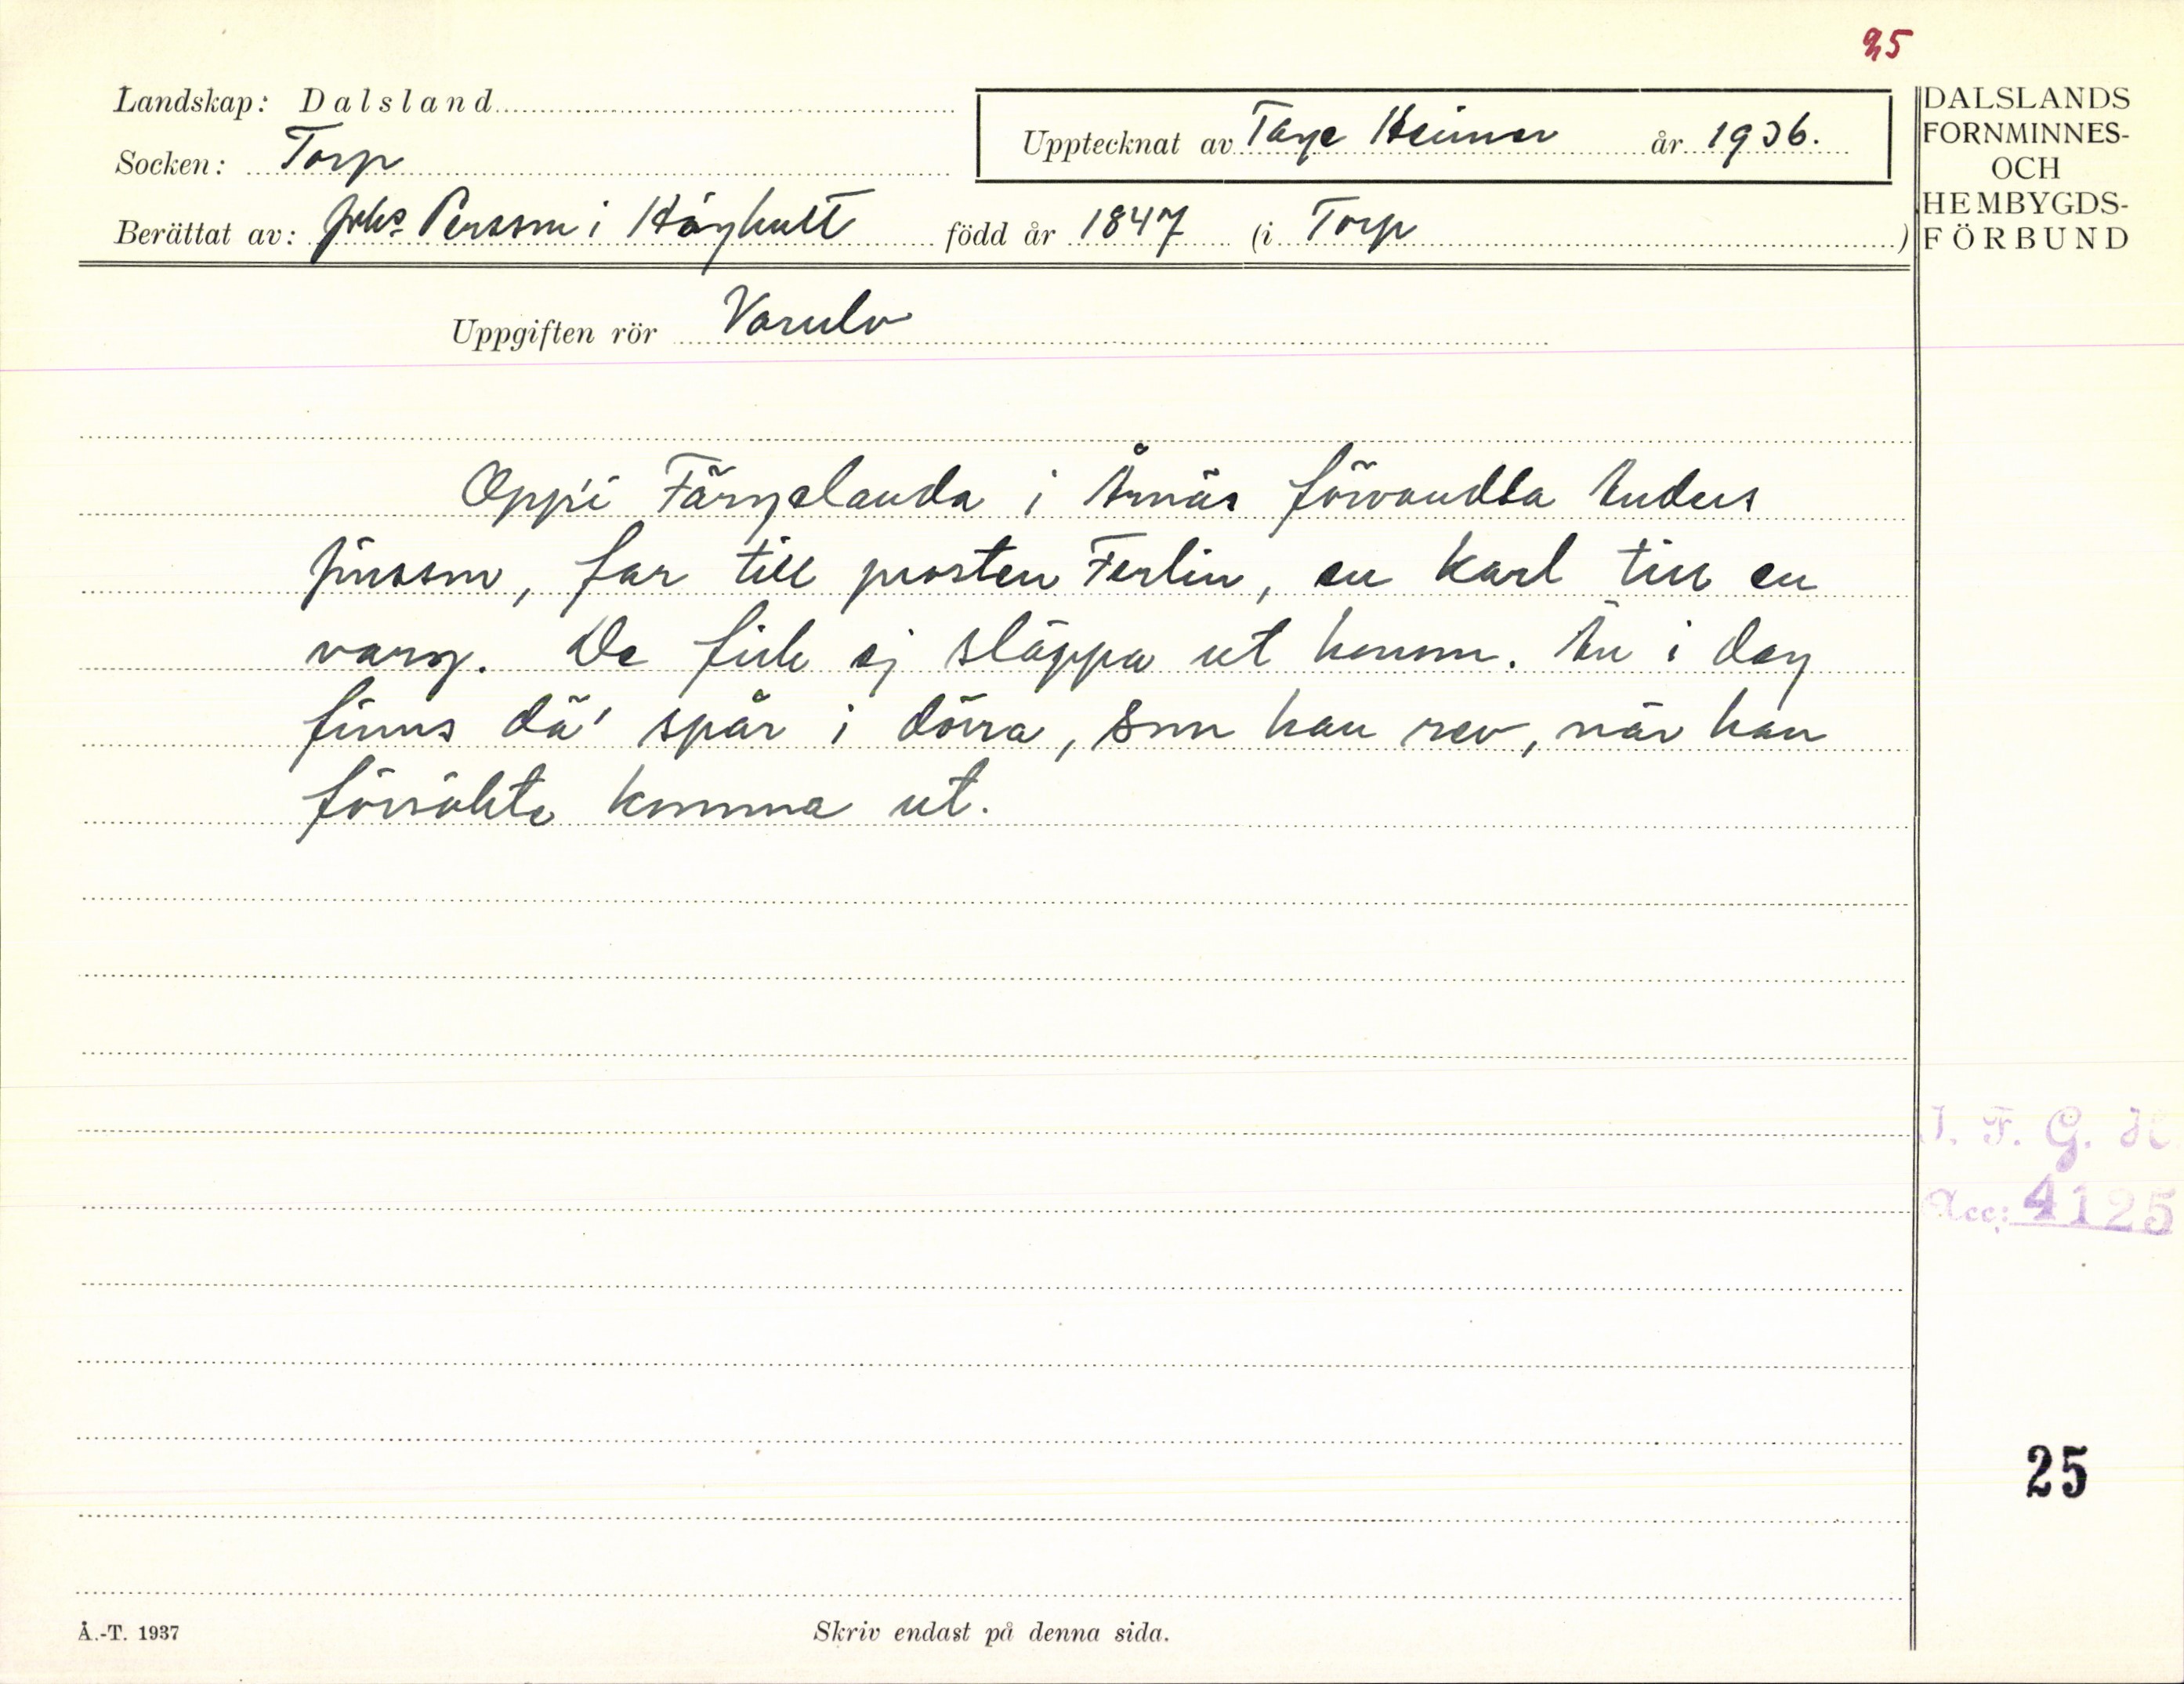 25
Landskap: Dalsland
Socken: Torp
Upptecknat av Tage Heimer år 1936.
Berättat av: Johs Persson i Höghult född år 1847 (i Torp )
DALSLANDS
FORNMINNES-
OCH
HEMBYGDS-
FÖRBUND
Uppgiften rör Varulv
Opp'i Färgelanda i Årnäs förvandla Anders
Jönsson, far till prosten Ferlin, en karl till en
varg. De fick ej släppa ut honom. Än i dag
finns dä' spår i dörra, som han rev, när han
försökte komma ut.
I. F. G. H
Acc: 4125
25
Å.-T. 1937
Skriv endast på denna sida.